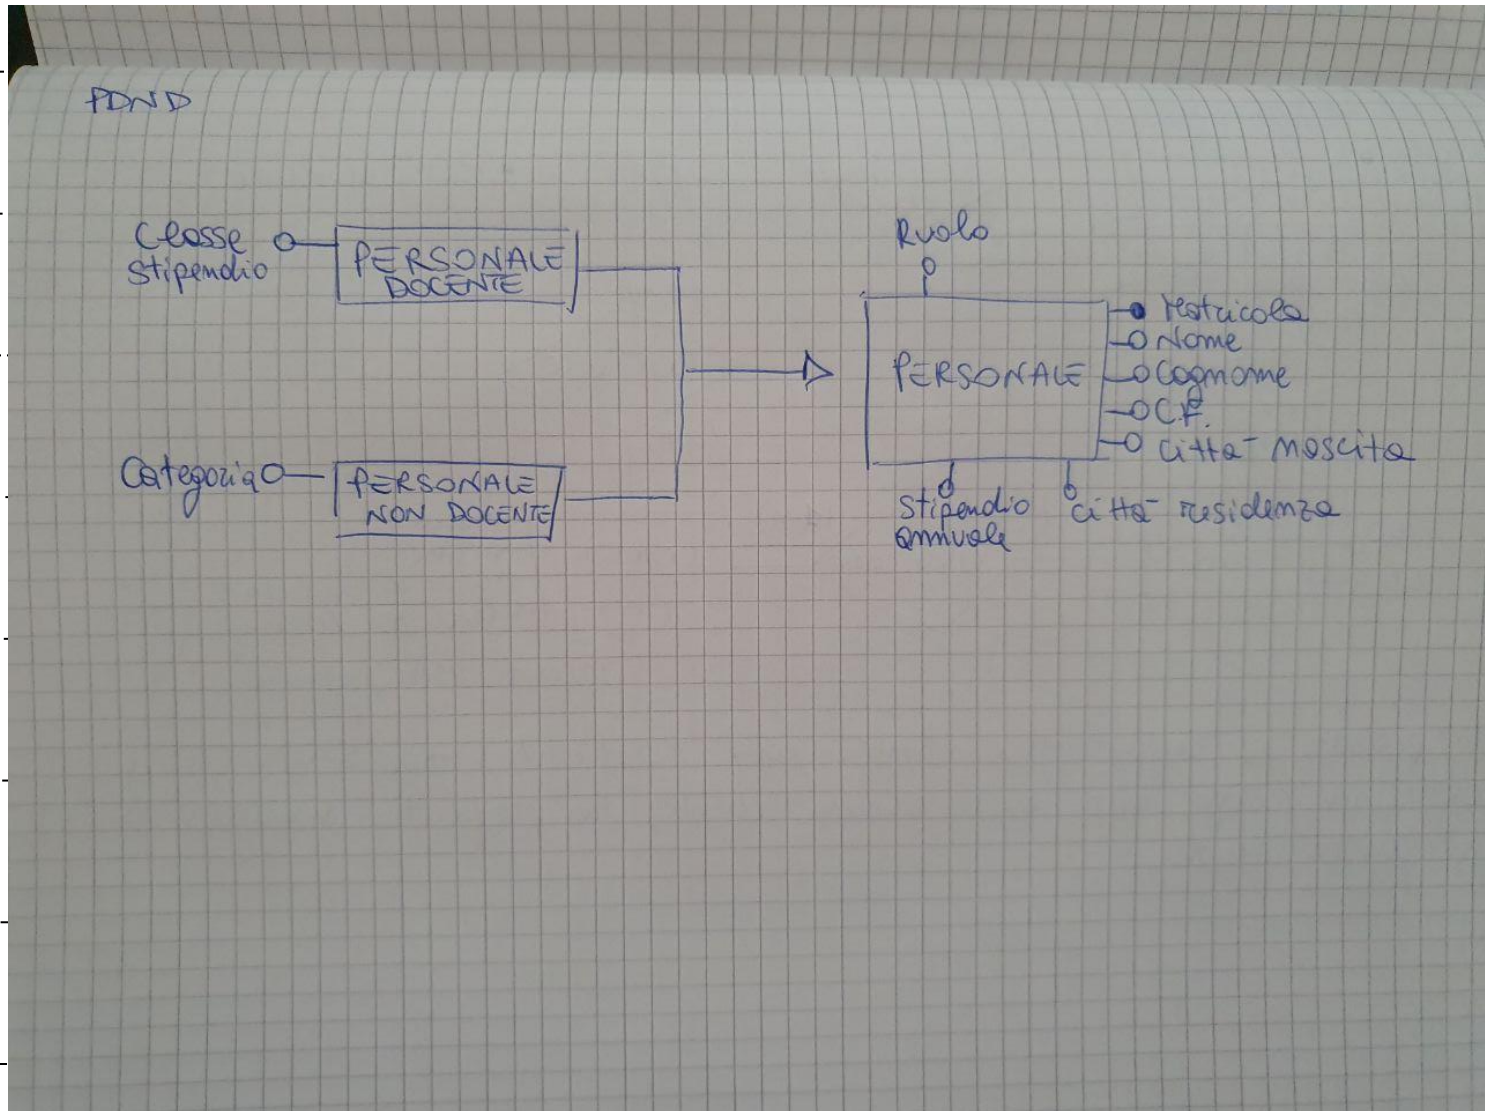 PDND
Classe
stipendio
PERSONALE
DOCENTE
Categoria
PERSONALE
NON DOCENTE
Ruolo
PERSONALE
Matricola
Nome
Cognome
C.F.
Città nascita
stipendio
annuale
Città residenza